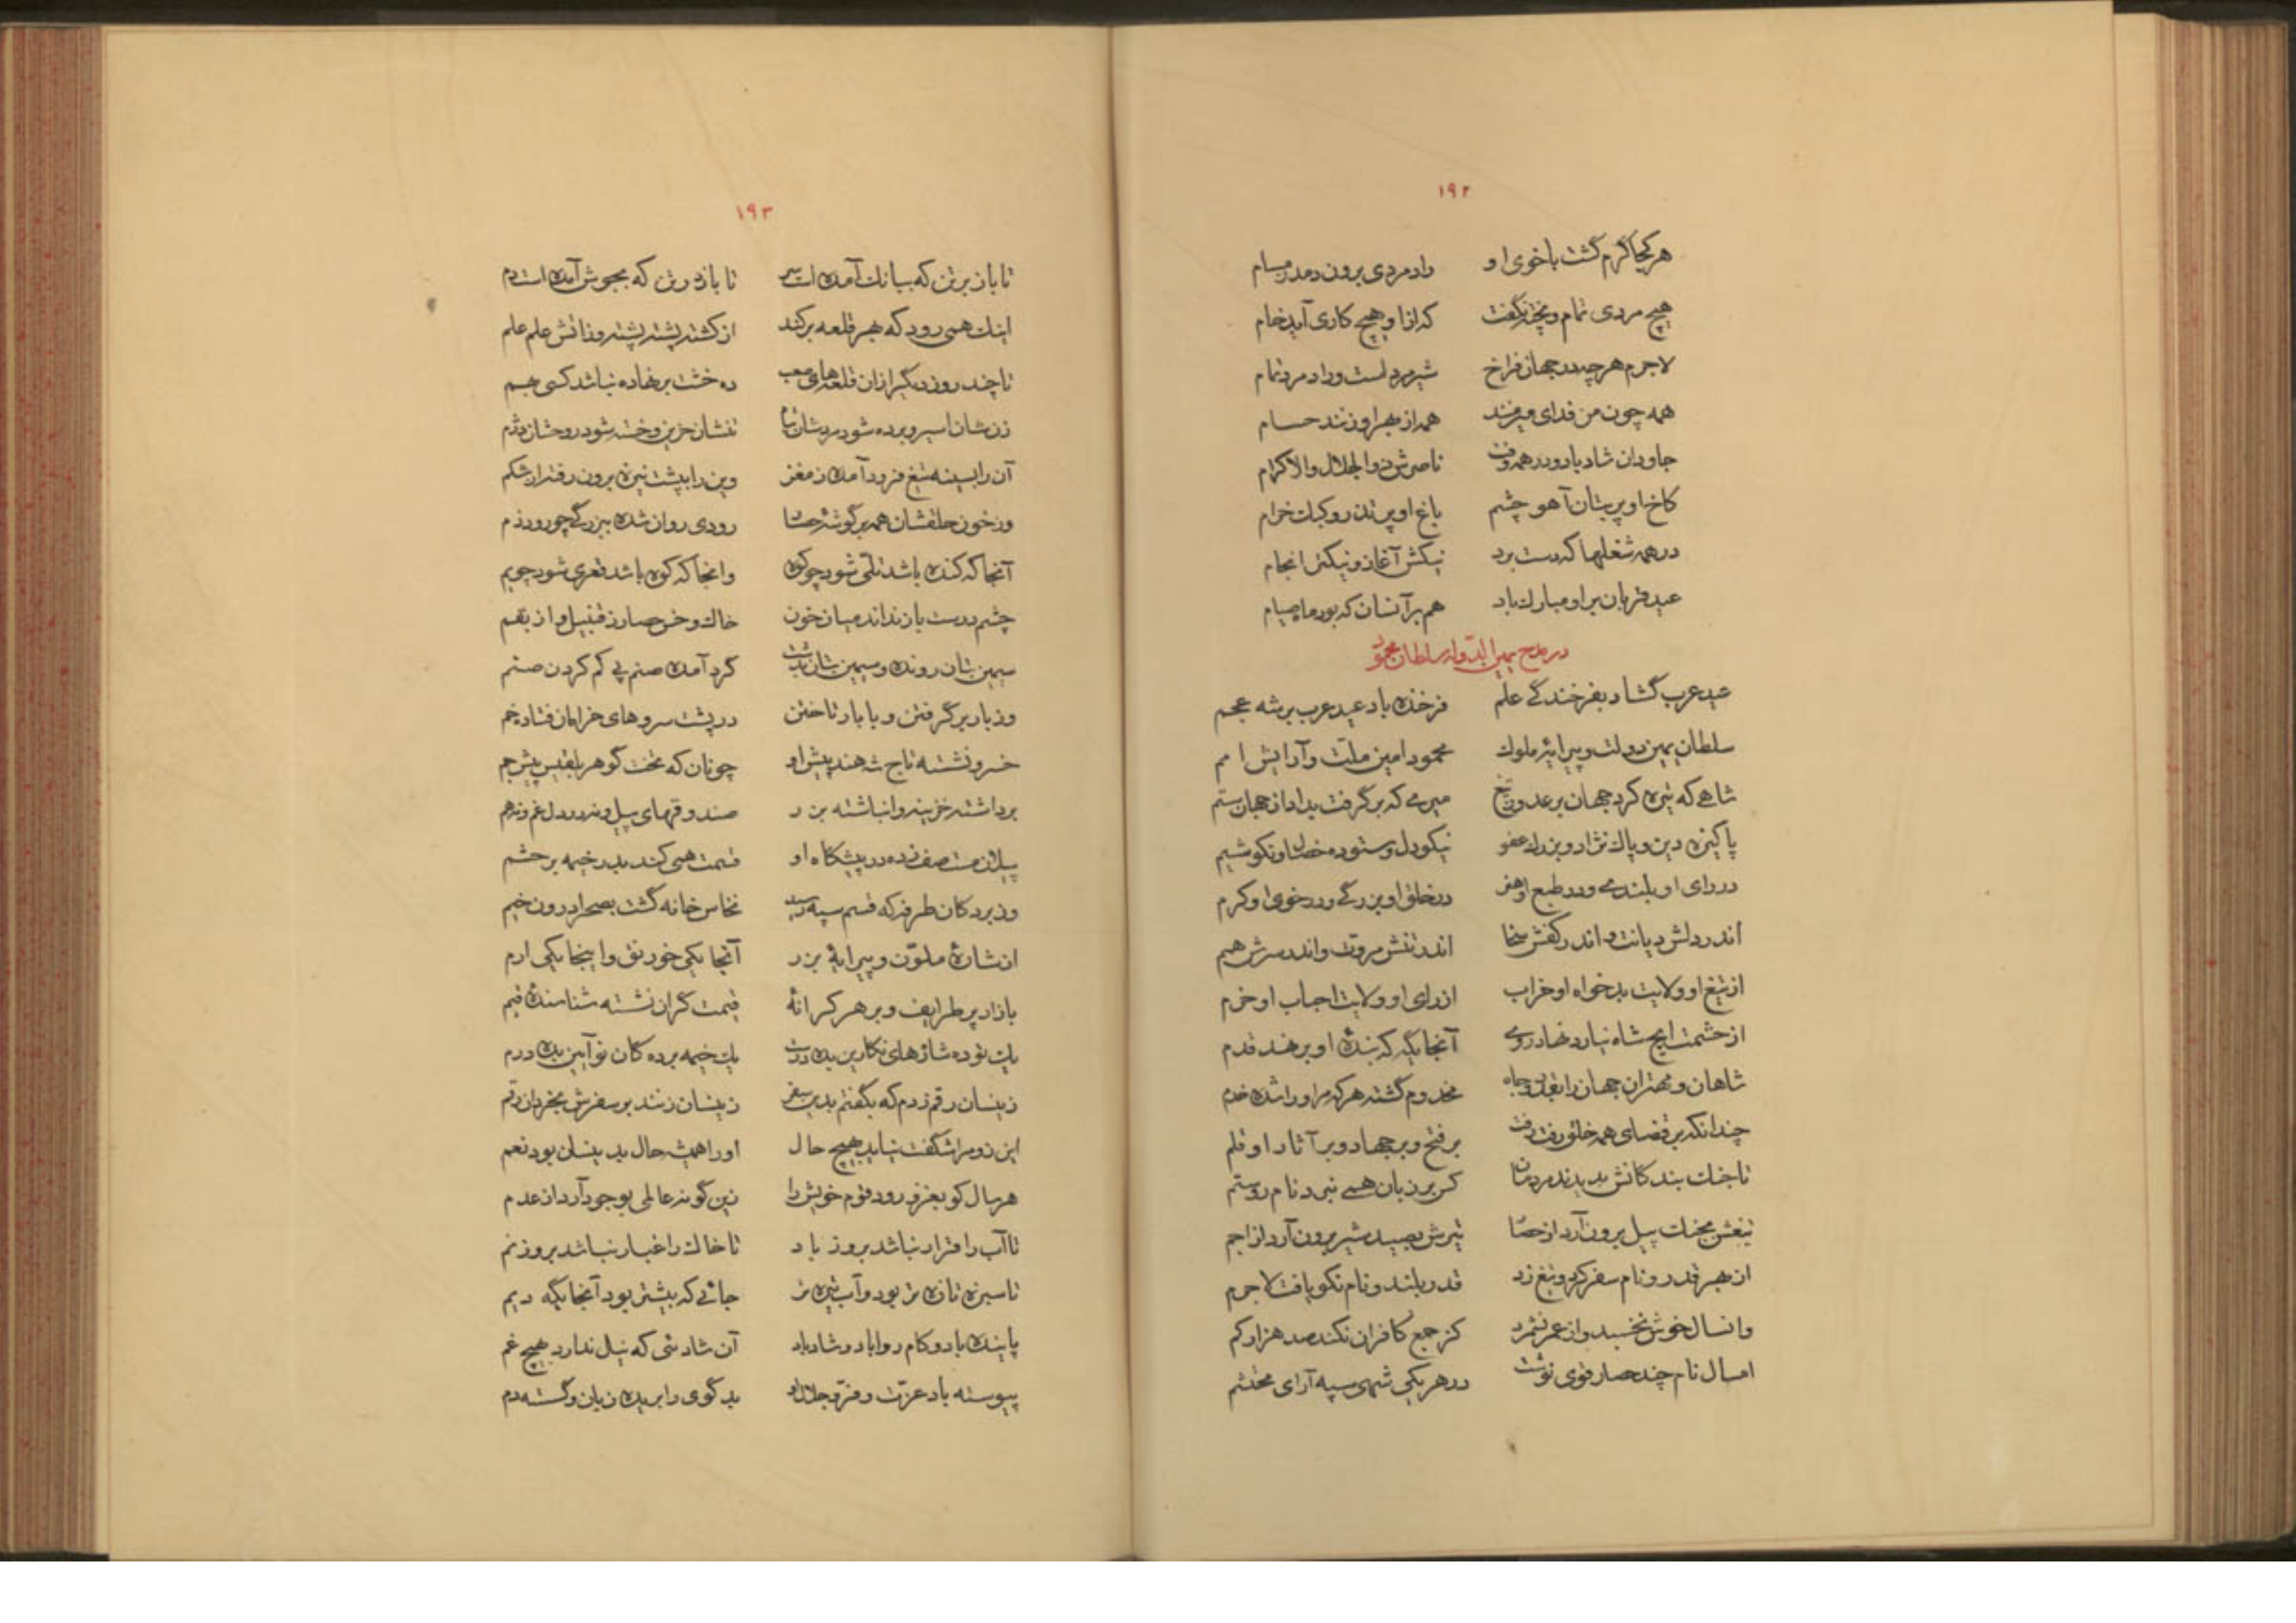 ۱۹۲
هر کجا گرم گشت با خوی او راد مردی برون دمد ز مسام
هیچ مردی تمام و پخته نگفت که ازا و هیچ کاری آید خام
لاجرم هر چه در جهان فراخ شیر مرد است و راد مرد تمام
همه چون من فدای میر منند همه از بهر او زنند حسام
جاودان شاد باد و در همه وقت ناصرش ذو الجلال والاکرام
کاخ او پر بتان آهو چشم باغ او پر تذرو کبک خرام
در همه شغلها که دست برد نیکش آغاز و نیکش انجام
عید قربان بر او مبارک باد هم بر آنسان که بود ماه صیام
در مدح یمین الدوله سلطان محمود
عید عرب گشاد بفرخندگی علم فرخنده باد عید عرب بر شه عجم
سلطان یمین دولت و پیرایۀ ملوک محمود امین ملت و آرایش امم
شاهی که تیره کرد جهان بر عدو بتیغ میری که برگرفت بداد از جهان ستم
پاکیزه دین و پاک نژاد و بزرگ عفو نیکو دل و ستوده خصال و نکو شیم
در رای او بلندی و در طبع او هنر در خلق او بزرگی و در خوی او کرم
اندر دلش دیانت و اندر کفش سخا اندر تنش مروت و اندر سرش همم
از تیغ او ولایت بدخواه او خراب از رای او ولایت احباب او خرم
از حشمت ایچ شاه نیارد نهاد روی آنجا یگه که بندۀ او بر نهد قدم
شاهان و مهتران جهان را بقدر و جاه مخدوم گشته هر که مر او را شده خدم
چندانکه بر قضای همه خلق رفت رفت بر فتح و بر جهاد و بر آثار او قلم
تا جنگ بندگانش بدیدند مردمان کس بر زبان همی نبرد نام روستم
تیغش بجنگ پیل برون آرد از حصار تیرش بصید شیر برون آرد از اجم
از بهر قدر و نام سفر کرد و تیغ زد قدر بلند و نام نکو یافت لاجرم
وانسال خوش نخسبد و از عمر نشمرد کز جمع کافران نکند صد هزار کم
امسال نام چند حصار قوی نوشت در هر یکی شهی سپه آرای محتشم
۱۹۳
تا باز بر تن که بیانک آمده است سر تا باز در تن که بجوش آمده است دم
اینک همی رود که بهر قلعه بر کند از کشته پشته پشته وز آتش علم علم
تا چند روز دیگر ازان قلعه‌های صعب ده خشت بر نهاده نباشد کسی بهم
زنشان اسیر و برده شود مردشان تباه تنشان حزین و خسته شود روحشان دژم
آن را بسینه تیغ فرود آمده ز مغز وین را بپشت نیزه برون رفته از شکم
وز خون حلقشان همه بر گوشۀ حصار رودی روان شده ببزرگی چو رود زم
آنجا که کنده باشد تلی شود چو کوه و انجا که کوه باشد قعری شود چو یم
چشم درست باز نداند میان خون خاک و خس حصار ز قنبیل و از بقم
سیمین بتان رونده و سیمین بتان بدست گرد آمده صنم پی گم کردن صنم
وز بار برگرفتن و با بار تاختن در پشت سروهای خرامان فتاده خم
خسرو نشسته تاج شه هند پیش او چونان که تخت گوهر بلقیس پیش جم
برداشته خزینه و انباشته بزر صندوقهای پیل و نه در دل غم و نه هم
پیلان مست صف زده در پیشگاه او قسمت همی کند بدر خیمه بر حشم
وز بردگان طرفه که قسم سپه رسید نخاس خانه گشت بصحرا درون خیم
از شارۀ ملون و پیرایۀ بزر آنجا یکی خورنق و اینجا یکی ارم
بازار پر طرایف و بر هر کرانۀ قیمت گران نشسته شناسندۀ قیم
یک توده شاره‌های نگارین بده درست یک خیمه برده گان نو آیین بده درم
زینسان رقم زدم که بگفتم بدین سفر زینسان زنند بر سفرش بخردان رقم
این زو مرا شگفت نیاید بهیچ حال او را همیشه حال بدینسان بود نعم
هر سال کو بغزو رود قوم خویش را زین گونه عالمی بوجود آرد از عدم
تا آب را قرار نباشد بروز باد تا خاک را غبار نباشد بروز نم
تا سبزه تازه تر بود و آب تیره تر جائی که بیشتر بود آنجا یگه دیم
پاینده باد و کام روا باد و شاد باد آن شادئی که نیل ندارد بهیچ غم
پیوسته باد عزت و فر و جلال او بد گوی را بریده زبان و گسسته دم